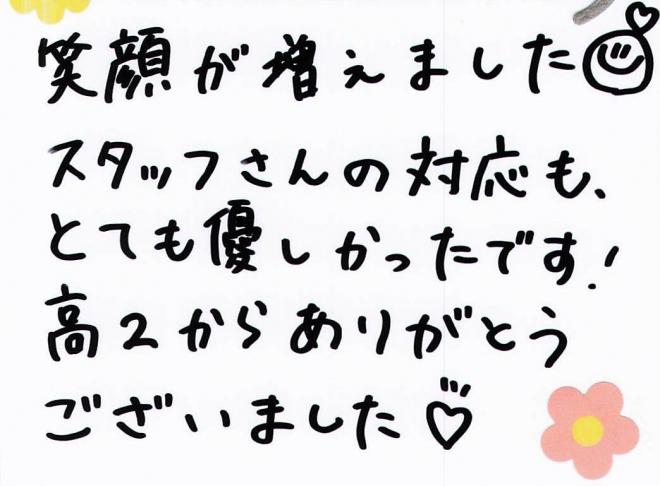 笑顔が増えました
スタッフさんの対応も、
とても優しかったです!
高2からありがとう
ございました♡